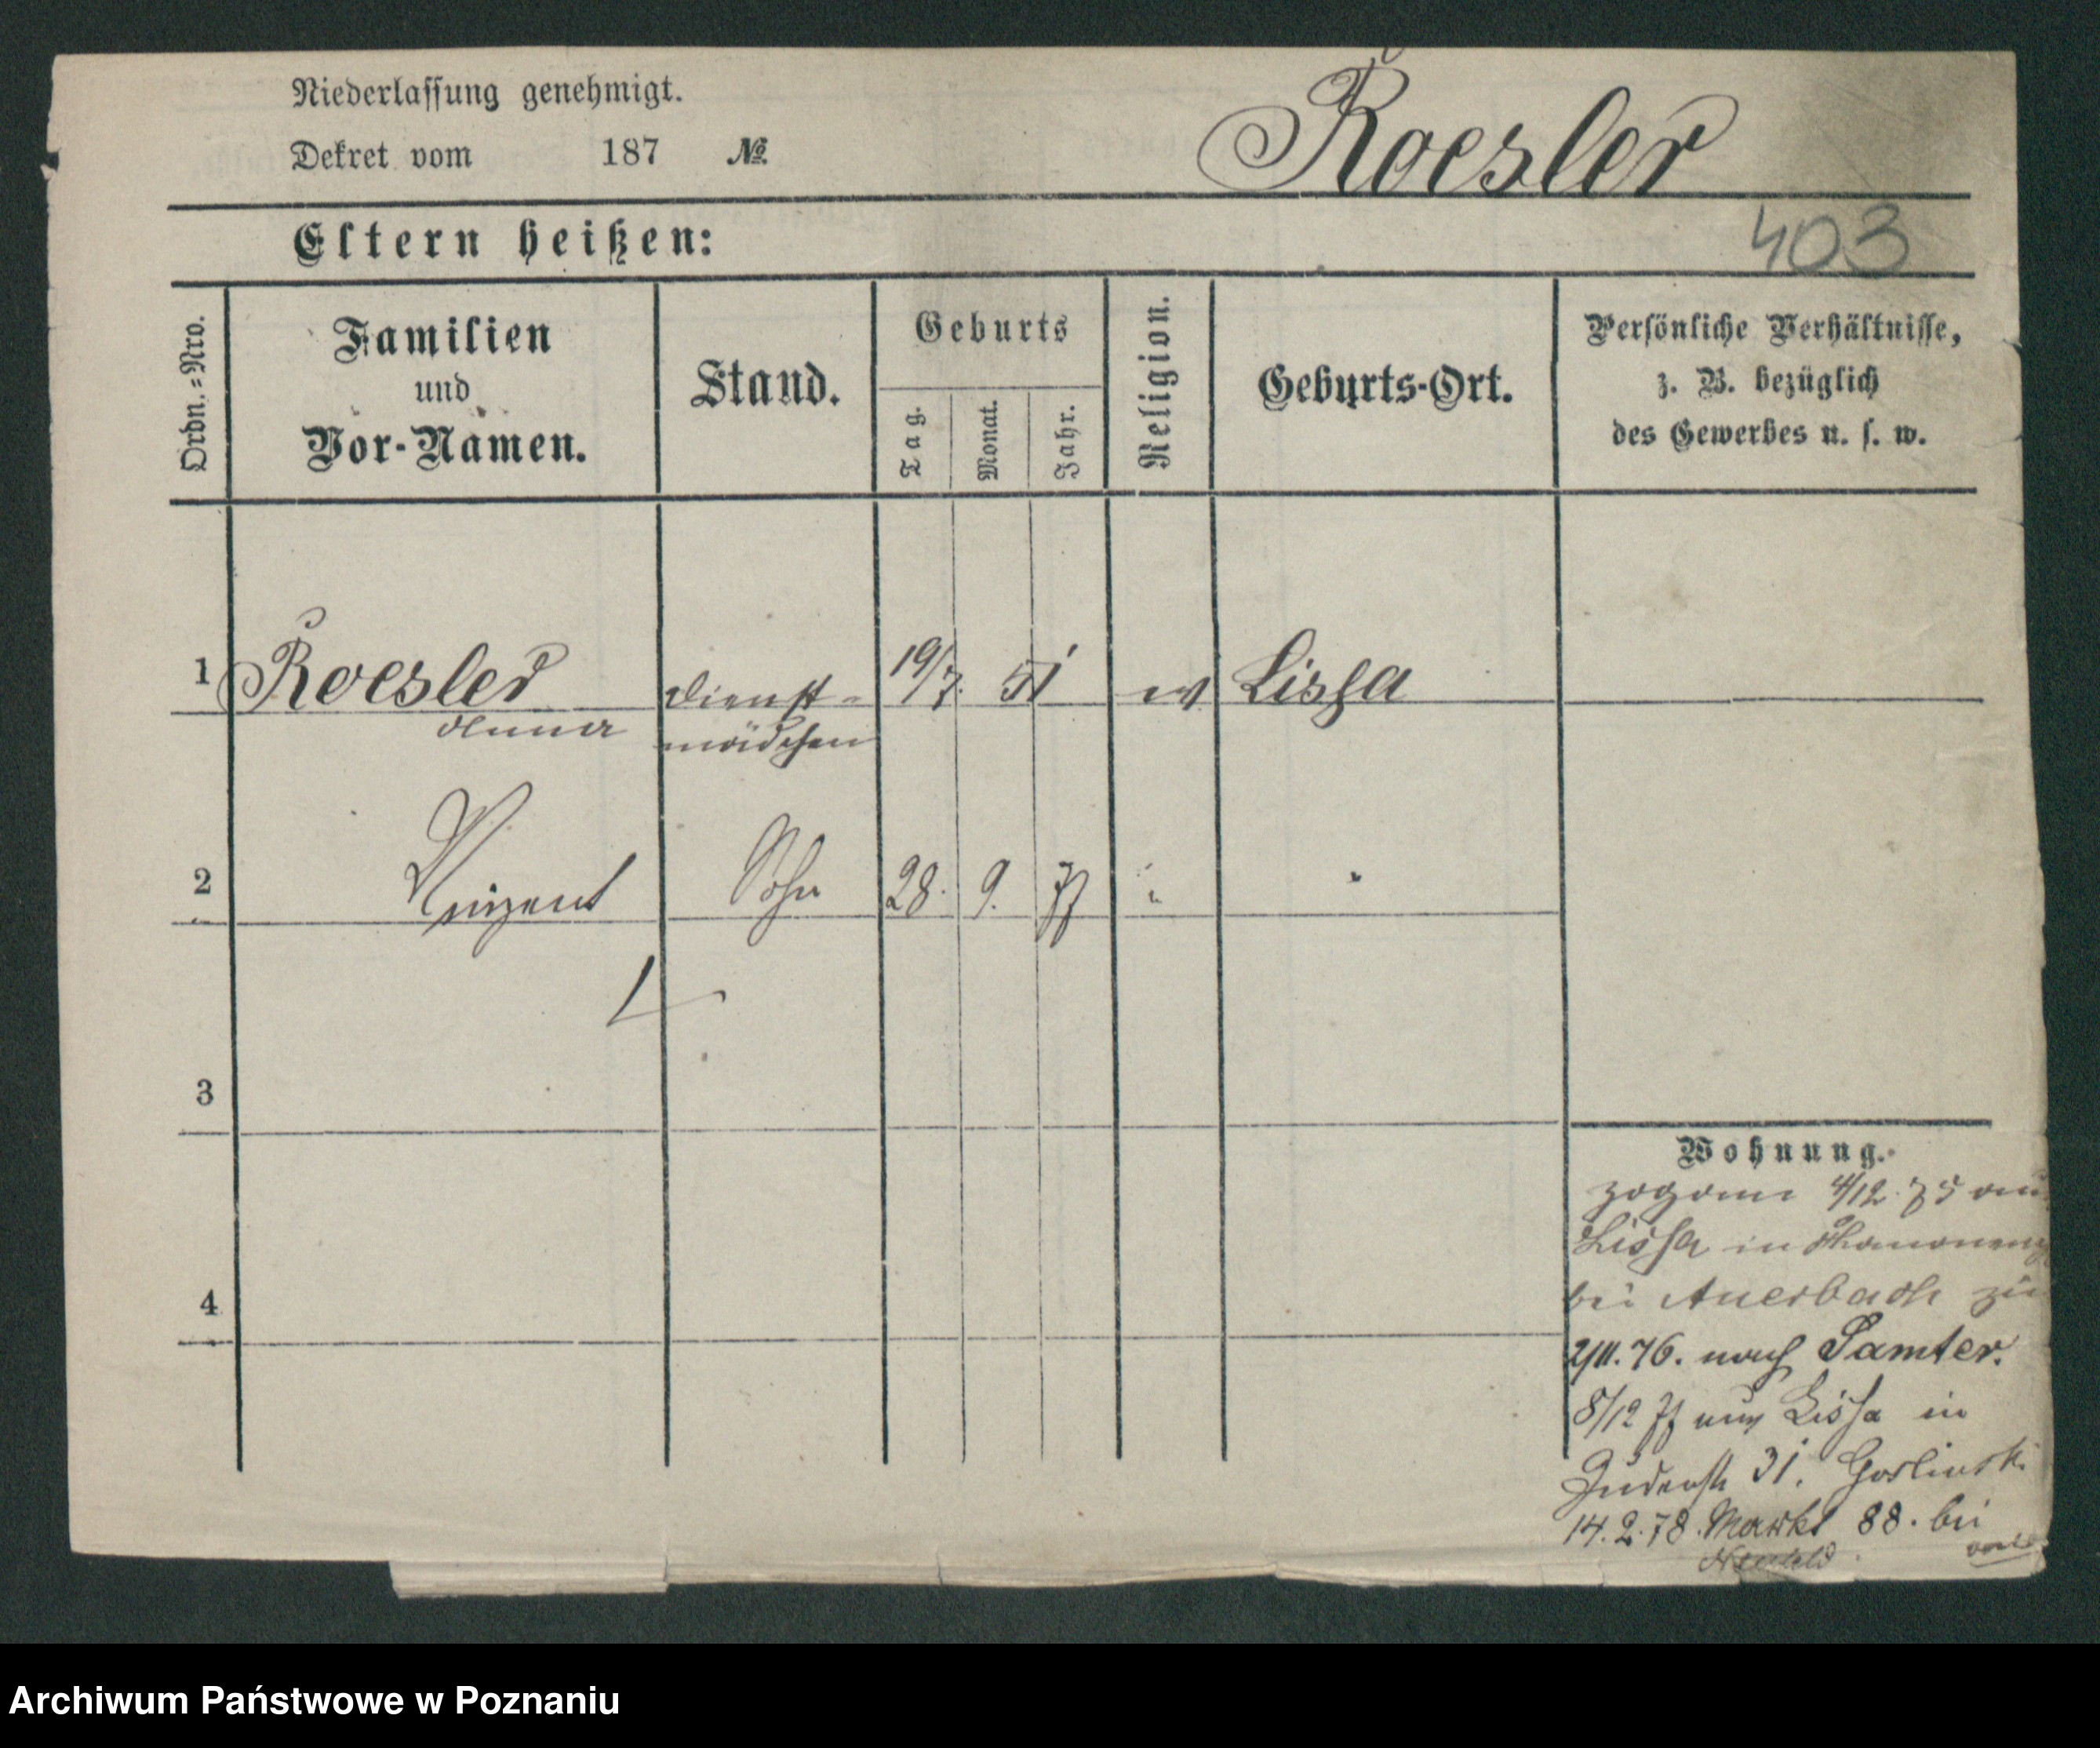 Niederlassung genehmigt.
Dekret vom 187 №
Roesler
Eltern heißen:
403
Ordn.=Nro.
Familien
und
Vor-Namen.
Stand.
Geburts
Tag.
Monat.
Jahr.
Religion.
Geburts-Ort.
Persönliche Verhältnisse,
z. B. bezüglich
des Gewerbes u. s. w.
1 Roesler Dienst= 19/7. 51 Lissa
Anna mädchen
2 Vinzent Sohn 28. 9. 77 "
3
4
Wohnung.
zog am 4/12. 75 aus
Lissa in
bei Auerbach zu
2/11. 76. nach Samter.
8/12 77 aus Lissa in
Judenstr 31. Goslinski
14. 2. 78. Markt 88. bei
Archiwum Państwowe w Poznaniu